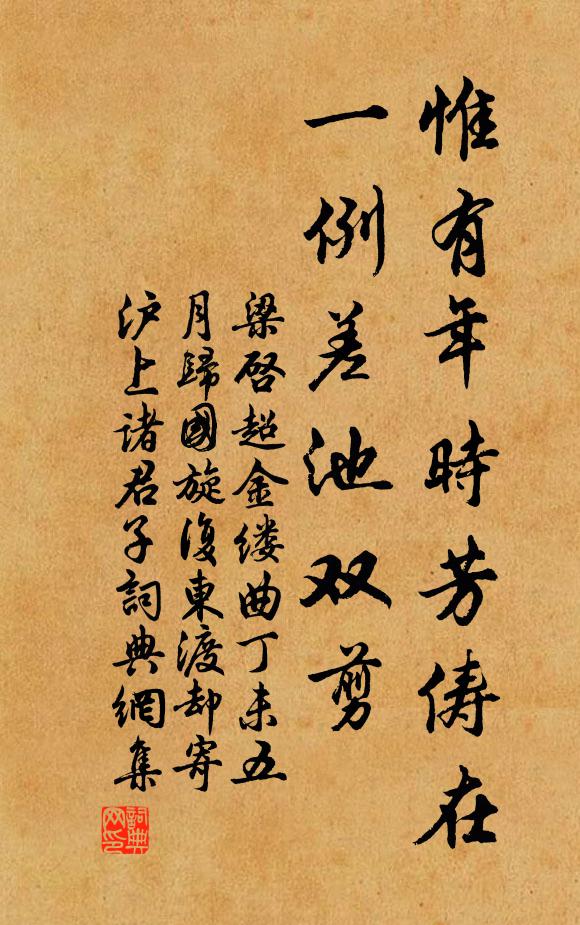 惟有年時芳俦在
一例差池双剪
梁启超金缕曲丁未五
月歸國旋復東渡却寄
沪上诸君子詞典網集
詞典
网印